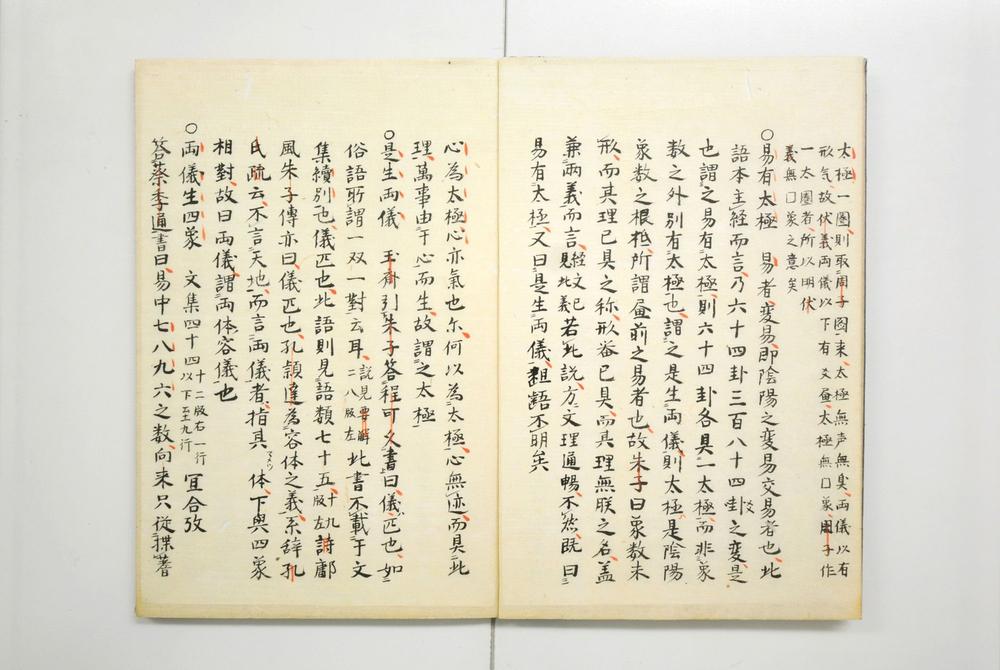 太極一圏則取周子図来太極無声無臭両儀以有
形気故伏義両儀以下有爻畫太極無口象周子作
一太圏者所以明伏
義無口象之意矣
○易有太極　易者変易即陰陽之変易交易者也此
語本主経而言乃六十四卦三百八十四爻卦之変是
也謂之易有太極則六十四卦各具一太極而非象
数之外別有太極也謂之是生両儀則太極是陰陽
象数之根柢所謂畫前之易者也故朱子曰象数未
形而其理已具之称形器已具而其理無朕之名蓋
兼両義而言経文已見此義若此説方文理通暢不然既曰
易有太極又曰是生両儀齟齬不明矣
心為太極心亦氣也尓何以為太極心無迹而具此
理萬事由于心而生故謂之太極
○是生両儀　玉斎引朱子答程可久書曰儀匹也如
俗語所謂一双一對云耳説見要解二八版左此書不載于文
集続別也儀匹也此語則見語類七十五十九版左詩鄘
風朱子傳亦曰儀匹也孔頴達為容体之義系辞孔
氏疏云不言天地而言両儀者指其体下與四象
相對故曰両儀謂両体容儀也
○両儀生四象　文集四十四十二版右一行以下至九行宜合攷
答蔡季通書曰易中七八九六之数向来只従揲蓍